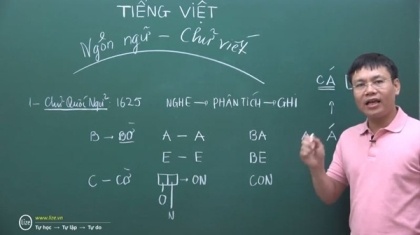 TIẾNG VIỆT
Ngôn ngữ – Chữ viết
1- Chữ Quốc Ngữ: 1625 NGHE → PHÂN TÍCH → GHI CÁ
B → BỜ A – A BA Á
E – E BE
C – CỜ → ON CON
O
N
lize
www.lize.vn
Tự học → Tự lập → Tự do